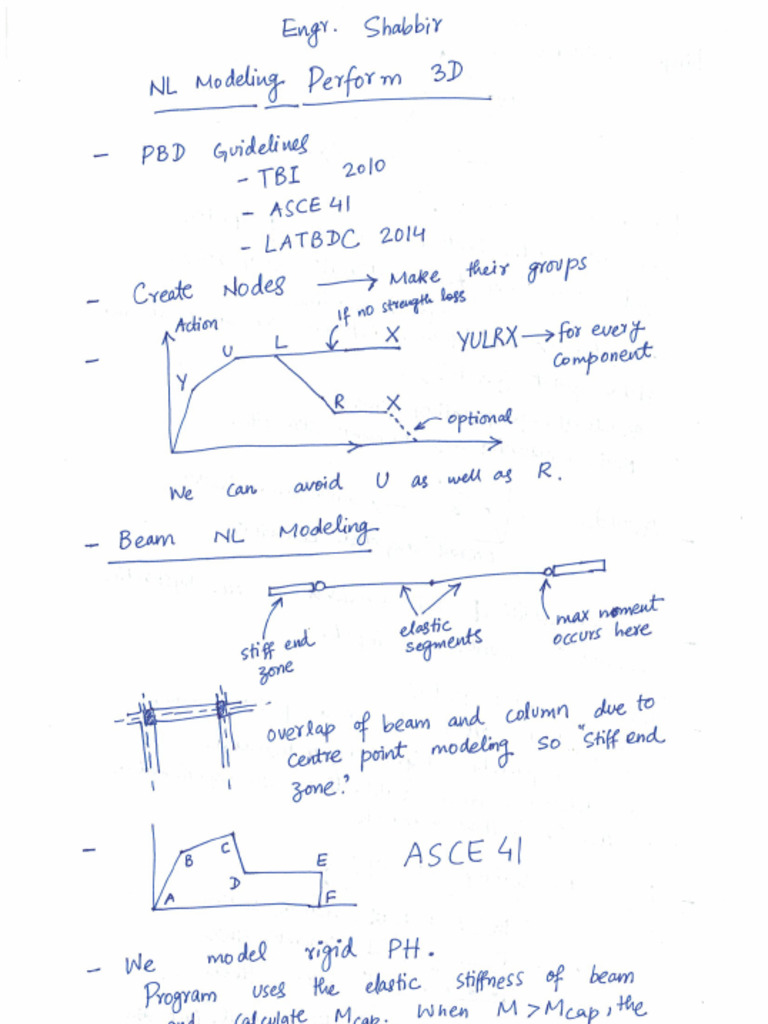 Engr. Shabbir
NL Modeling Perform 3D
- PBD Guidelines
- TBI 2010
- ASCE 41
- LATBDC 2014
- Create Nodes → Make their groups
Action
If no strength loss
Y U L X
R X
optional
YULRX → for every
component
We can avoid U as well as R.
- Beam NL Modeling
stiff end
zone
elastic
segments
max moment
occurs here
overlap of beam and column due to
centre point modeling so "stiff end
zone."
-
A B C D E F
ASCE 41
- We model rigid PH.
Program uses the elastic stiffness of beam
and calculate Mcap. When M > Mcap, the